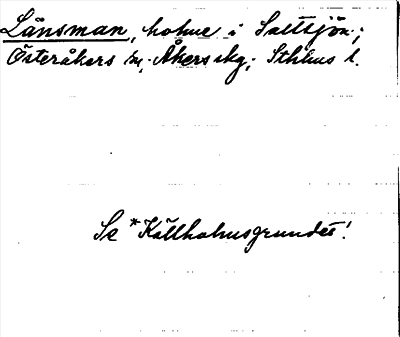 Länsman, holme i Saltsjön;
Österåkers sn, Åkers skg; Sthlms l.
Se *Källholmsgrundet!